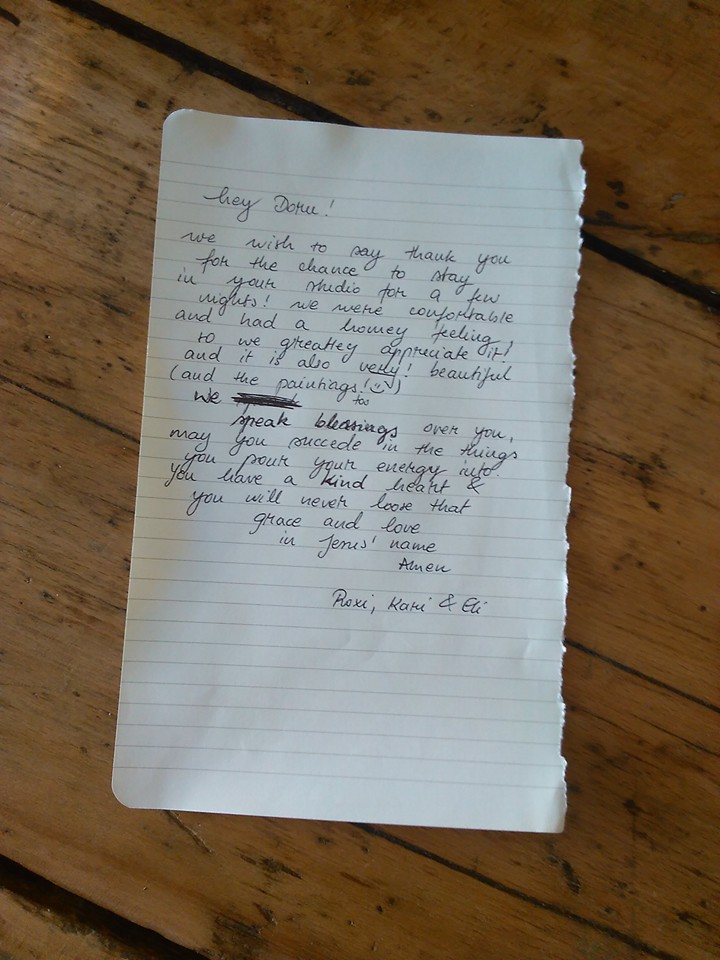 hey Doru!
we wish to say thank you
for the chance to stay
in your studio for a few
nights! we were comfortable
and had a homey feeling,
so we greatley appreciate it!
and it is also very! beautiful
(and the paintings! too)
we
speak blessings over you,
may you succede in the things
you pour your energy into.
You have a kind heart &
you will never loose that
grace and love
in Jesus' name
Amen
Roxi, Kari & Eli